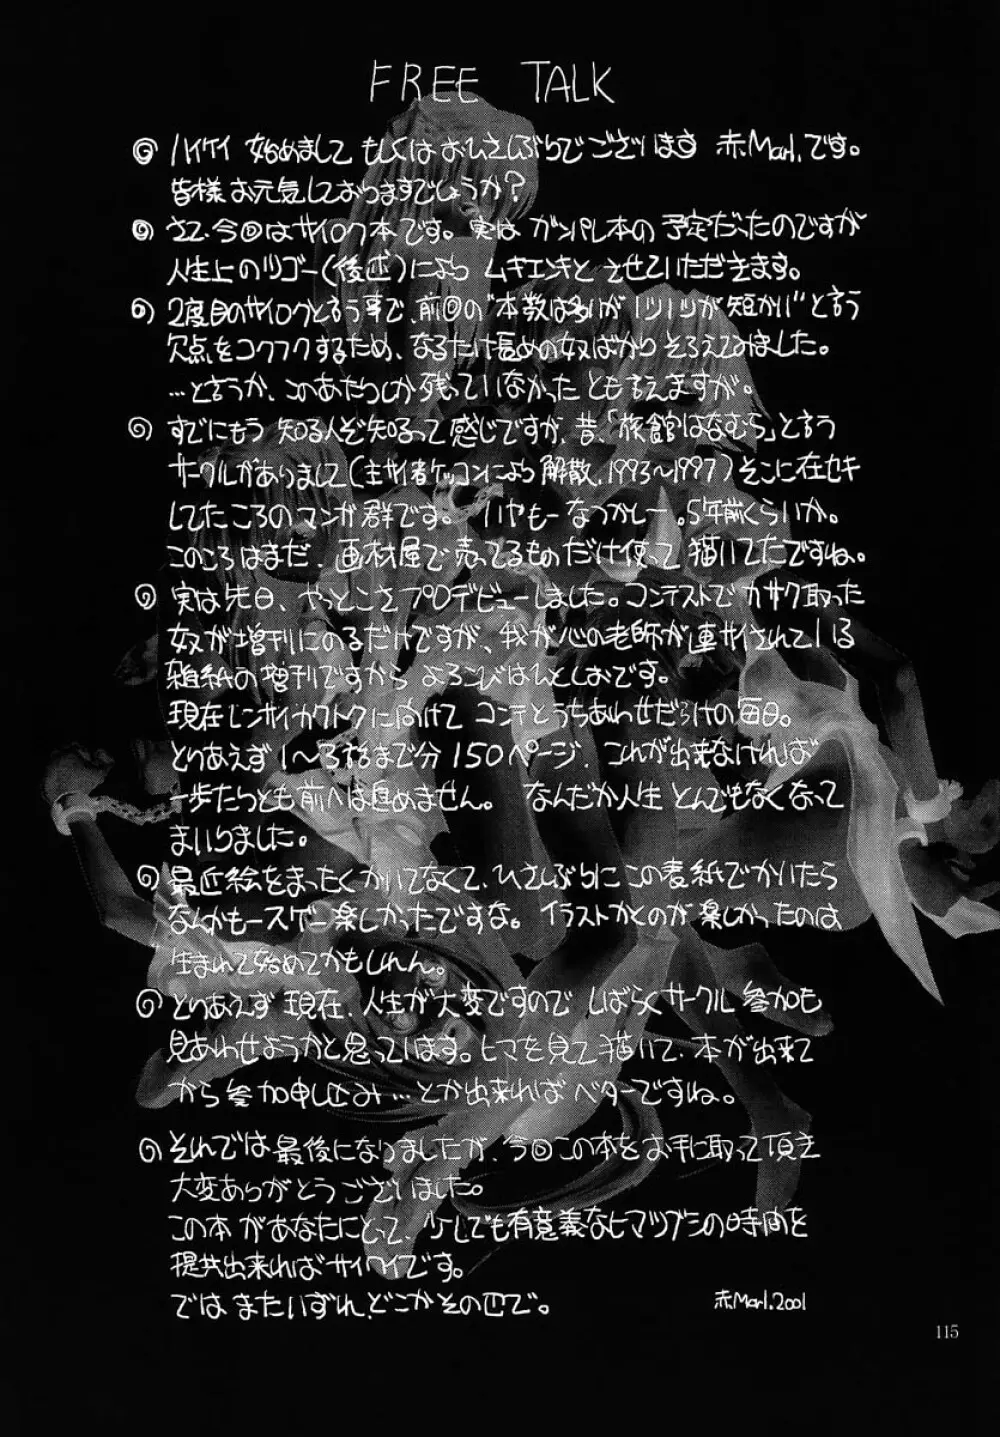 FREE TALK
ハイケイ 始めまして もしくはおひさしぶりでございます 赤Marl.です。
皆様お元気しておりますでしょうか?
さて、今回はサイロク本です。実は ガンパレ本の予定だったのですが
人生上のツゴー(後述)により ムキエンキと させていただきます。
2度目のサイロクと言う事で、前回の"本数は多いが 1ツ1ツが短かい"と言う
欠点をコクフクするため、なるたけ長めの奴ばかり そろえてみました。
…と言うか、このあたりしか残っていなかった とも言えますが。
すでにもう 知る人ぞ知るって感じですが、昔、「旅館はなむら」と言う
サークルがありまして(主サイ者ケッコンにより解散、1993〜1997)そこに在セキ
してたころのマンガ群です。 いやもーなつかしー。5年前くらいか。
このころはまだ、画材屋で売ってるものだけ使って 描いてたですね。
実は先日、やっとこさプロデビューしました。コンテストでカサク取った
奴が増刊にのるだけですが、我が心の老師が連サイされている
雑紙の増刊ですから よろこびはんとしおです。
現在レンサイカクトクに向けて コンテとうちあわせだらけの毎日。
とりあえず1〜3話まで分150ページ、これが出来なければ
一歩たりとも前へは進めません。 なんだか人生 とんでもなくなって
まいりました。
最近絵をまったくかいてなくて、ひさしぶりにこの表紙でかいたら
なんかもースゲー楽しかったですな。イラストかくのが楽しかったのは
生まれて始めてかもしれん。
とりあえず現在、人生が大変ですので しばらくサークル参加も
見あわせようかと思っています。ヒマを見て描いて、本が出来て
から参加申し込み…とか出来ればベターですね。
それでは最後になりましたが、今回この本をお手に取って頂き
大変ありがとうございました。
この本があなたにとって、少しでも有意義なヒマツブシの時間を
提供出来ればサイワイです。
では またいずれ、どこかその辺で。
赤Marl.2001
115